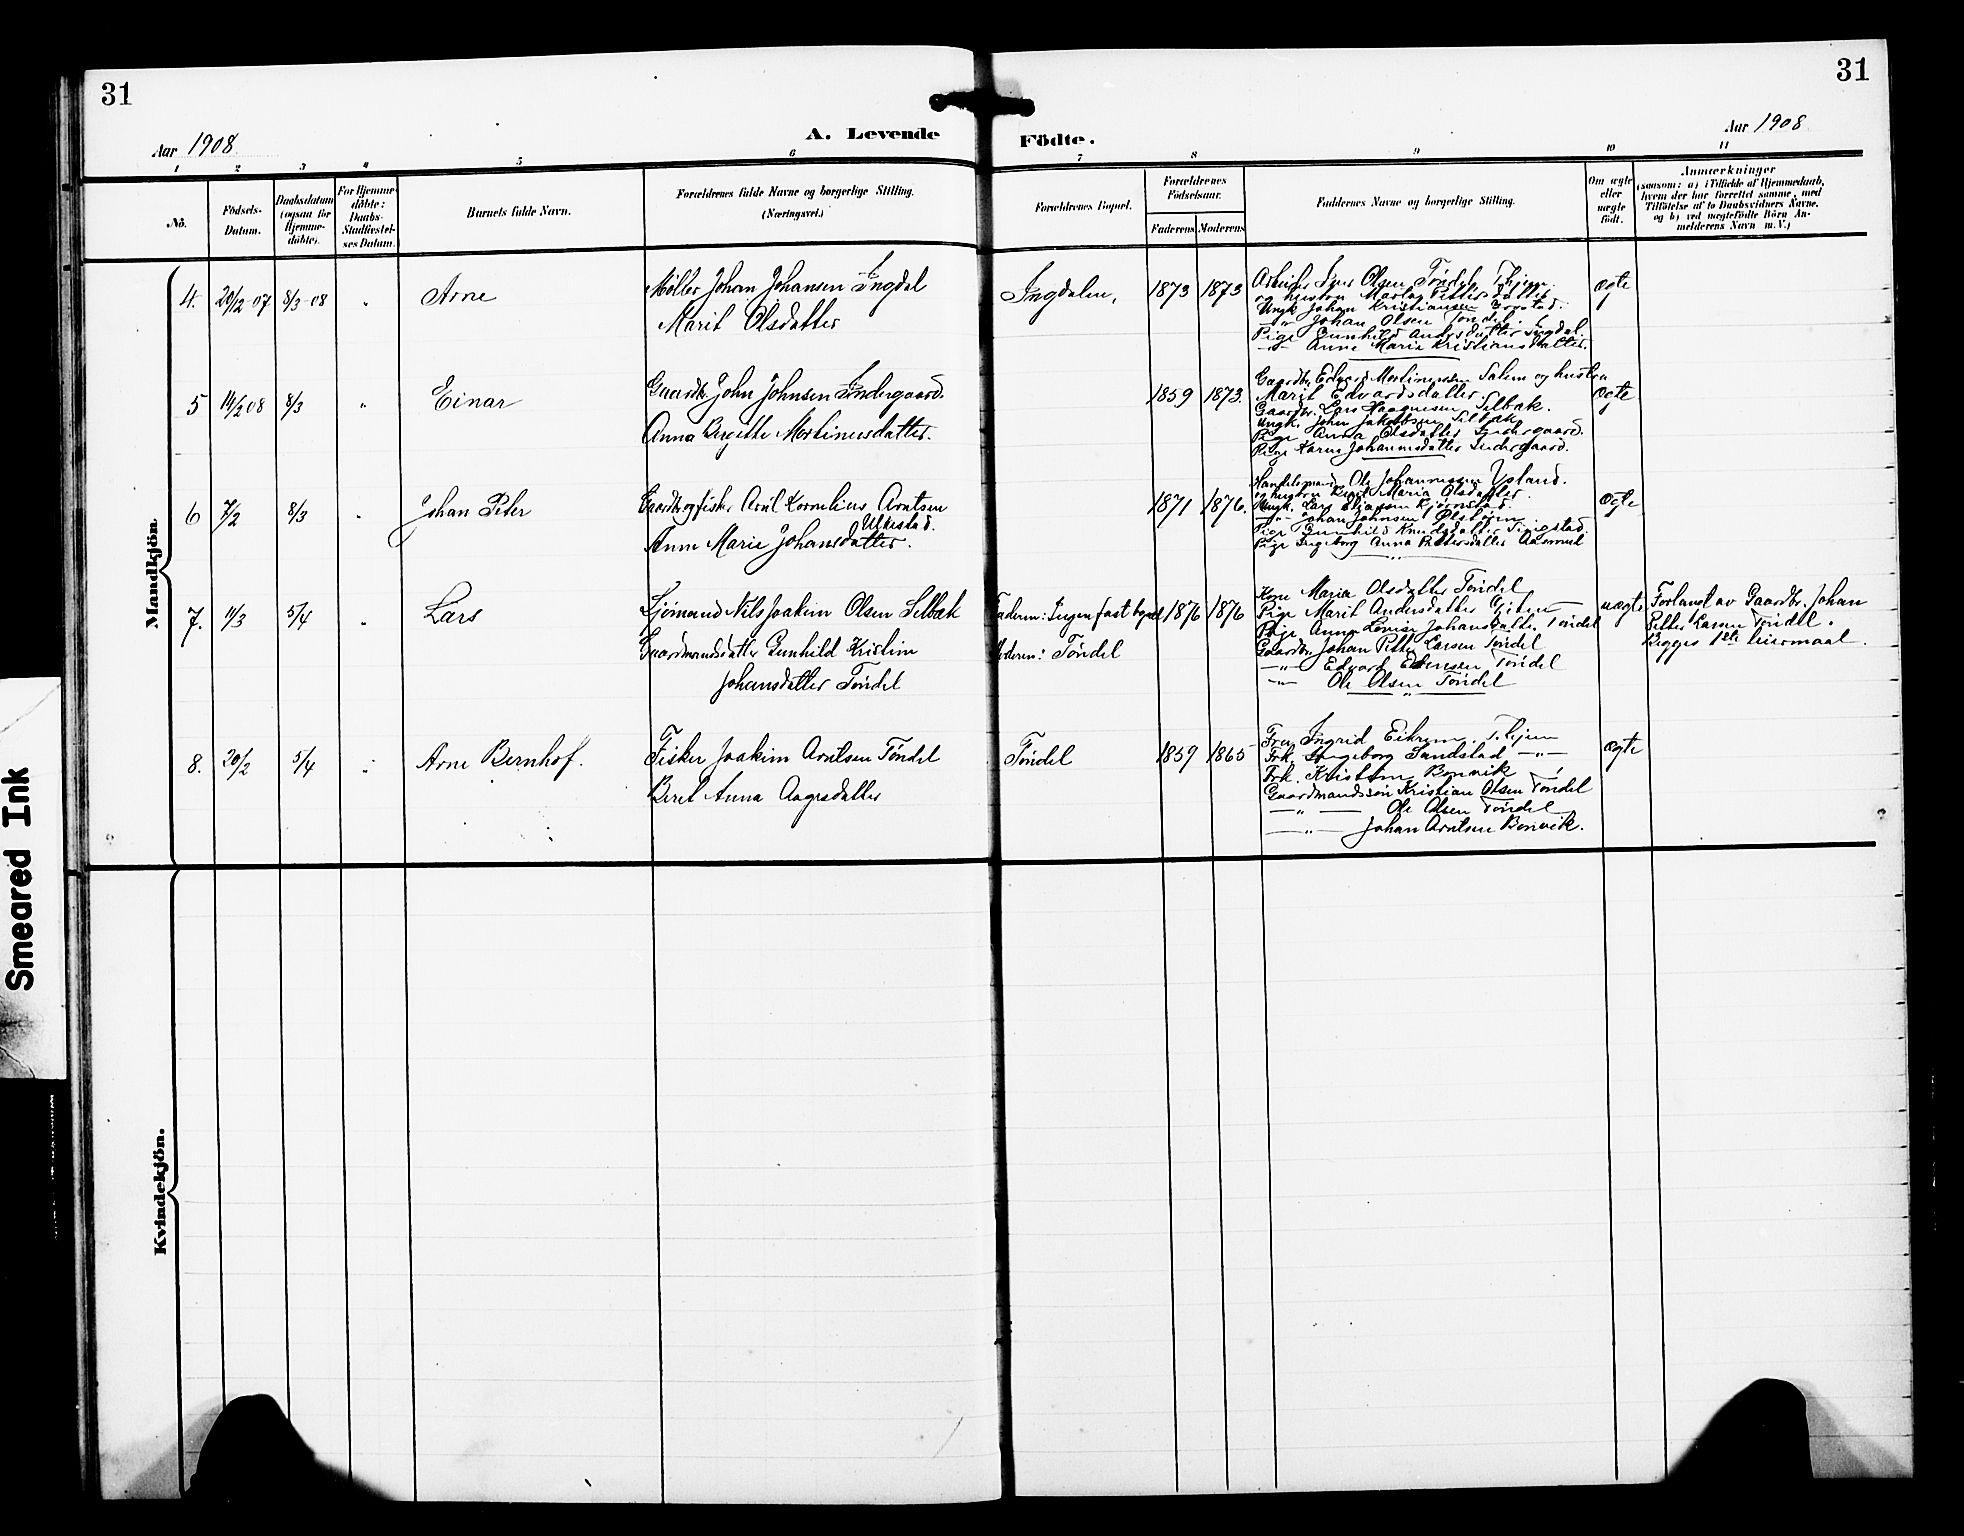 31
31
Aar 1908
A. Levende
Födte.
Aar 1908.
1 2 3 4 5 6 7 8 9 10 11
No.
Födsels-
Datum.
Daabsdatum
(ogsaa for
Hjemme-
döbte).
For Hjemme-
döbte:
Daabs-
Stadfæstel-
ses Datum.
Barnets fulde Navn.
Forældrenes fulde Navne og borgerlige Stilling.
(Næringsvei.)
Forældrenes Bopæl.
Forældrenes
Födselsaar.
Faderens
Moderens
Faddernes Navne og borgerlige Stilling.
Om ægte
eller
uægte
födt.
Anmærkninger
(saasom: a) i Tilfælde af Hjemmedaab,
hvem der har forrettet samme, med
Tilföielse af to Daabsvidners Navne,
og b) ved uægtefödte Börn An-
melderens Navn m.V.)
Mandkjön.
4. 20/12-07 8/3-08 " Arne
Møller Johan Johansen Ingdal
Marit Olsdatter
Ingdalen,
1873 1873
Arbeider Iver Olsen Tøndel, Thjem
og hustru Martha Pettersdatter
Ungk. Johan Kristiansen
-"- Johan Olsen Tøndel.
Pige Gunhild Andersdatter Ingdal.
-"- Anne Marie Kristiansdatter.
ægte
5 14/2 08 8/3 " Einar
Gaardb. John Johnsen Indergaard.
Anna Birgitte Mortinusdatter.
1859 1873.
Gaardbr. Edvard Mortinussen Salem og hustru
Marit Edvardsdatter
Gaardbr. Lars Haagensen Selbæk.
Ungk. John Jakobsen Selbæk
Pige Anna Olsdatter Indergaard.
Pige Karen Johannesdatter Indergaard.
ægte
6 7/2 8/3 " Johan Peter
Gaardbr. og fisker Arnt Kornelius Arntsen
Ulvestad.
Anne Marie Johansdatter.
1871 1876.
Handelsmand Ole Johannessen Ysland.
og hustru Marit Maria Olsdatter.
Ungk. Lars Eliassen
-"- Johan Johnsen
Pige Gunhild Knudsdatter
Pige Ingeborg Anna Pettersdatter Aasmul
ægte
7. 11/3 5/4 " Lars
Sjømand Nils Joakim Olsen Selbæk
Gaardmandsdatter Gunhild Kristine
Johansdatter Tøndel
Faderen: Ingen fast bopæl
Moderen: Tøndel
1876 1876
Kone Maria Olsdatter Tøndel
Pige Marit Andersdatter
Pige Anna Lovise Johansdatter Tøndel
Gaardbr. Johan Petter Larsen Tøndel
-"- Edvard Edvinsen Tøndel
-"- Ole Olsen Tøndel
uægte
Forlangt av Gaardbr. Johan
Petter Larsen Tøndel.
Begges 1ste leiermaal.
8. 20/2 5/4 " Arne Bernhof.
Fisker Joakim Arntsen Tøndel
Beret Anna Aagesdatter
Tøndel
1859 1865
Fru Ingrid Eikrem, Thjem
Frk. Ingeborg Sandstad -"-
Frk. Kristine Bonvik
Gaardmandssøn Kristian Olsen Tøndel
-"- Ole Olsen Tøndel
-"- Johan Arntsen Bonvik.
ægte
Kvindekjön.
Smeared Ink